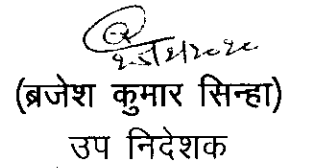 (ब्रजेश कुमार सिन्हा)
उप निदेशक